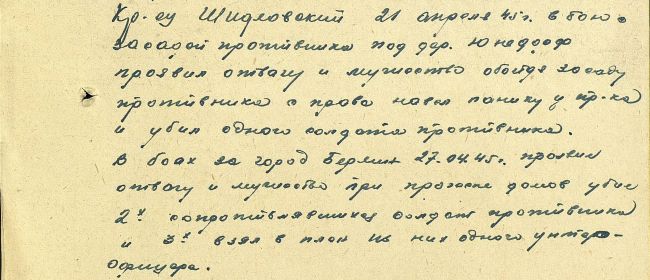 Кр-ец Шидловский 21 апреля 45 г. в бою с
засадой противника под дер. Юнсдорф
проявил отвагу и мужество обойдя засаду
противника с права навел панику у пр-ка
и убил одного солдата противника.
В боях за город Берлин 27.04.45 г. проявил
отвагу и мужество при прочёске домов убил
2х сопротивлявшихся солдат противника
и 3х взял в плен из них одного унтер-
офицера.